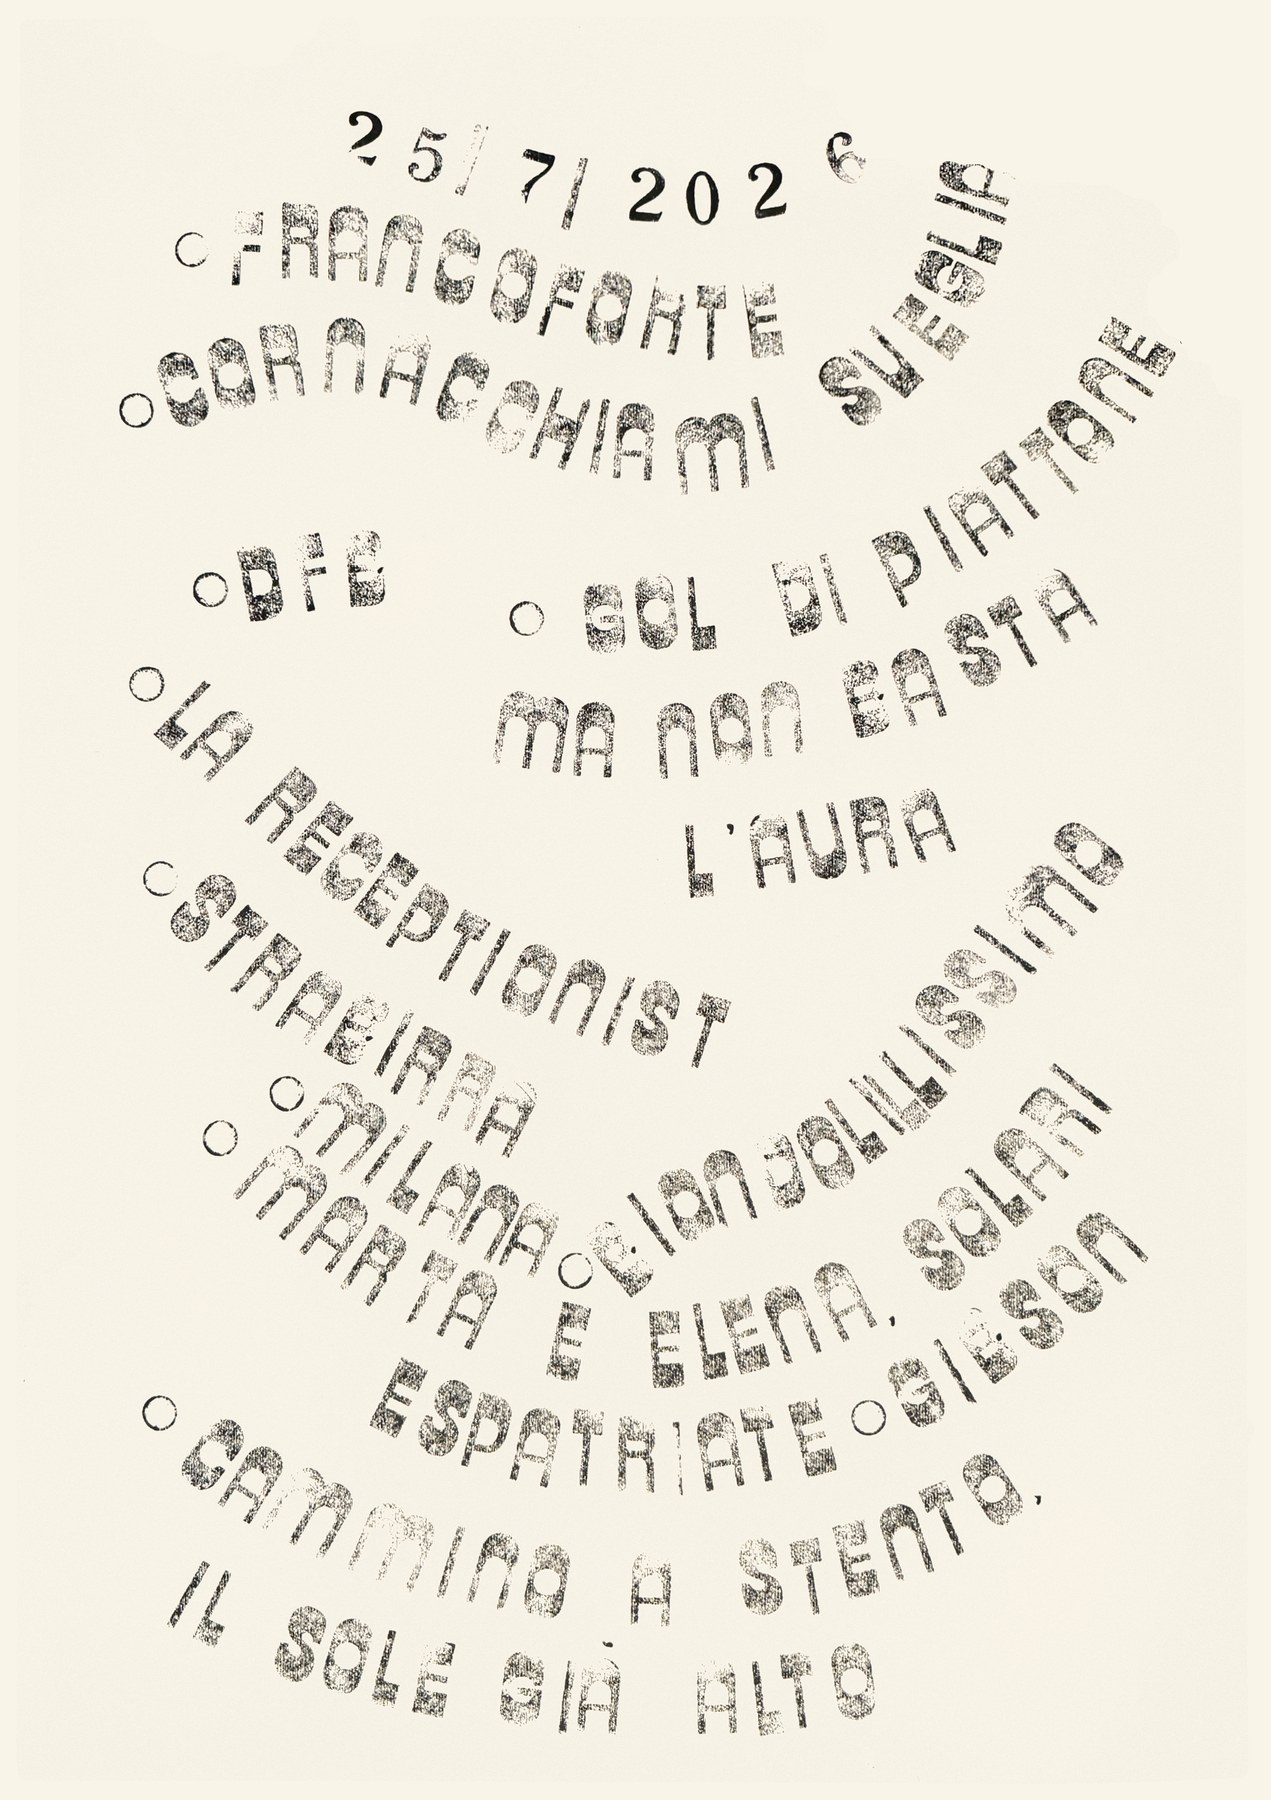 25/7/2026
○ FRANCOFORTE
○ CORNACCHIA MI SVEGLIA
○ DFB
○ GOL DI PIATTONE
MA NON BASTA
L'AURA
○ LA RECEPTIONIST
○ STRABIRRA
○ MILANA
○ BION JOLILLISSIMO
○ MARTA E ELENA, SOLARI
ESPATRIATE
○ GIBSON
○ CAMMINO A STENTO,
IL SOLE GIÀ ALTO